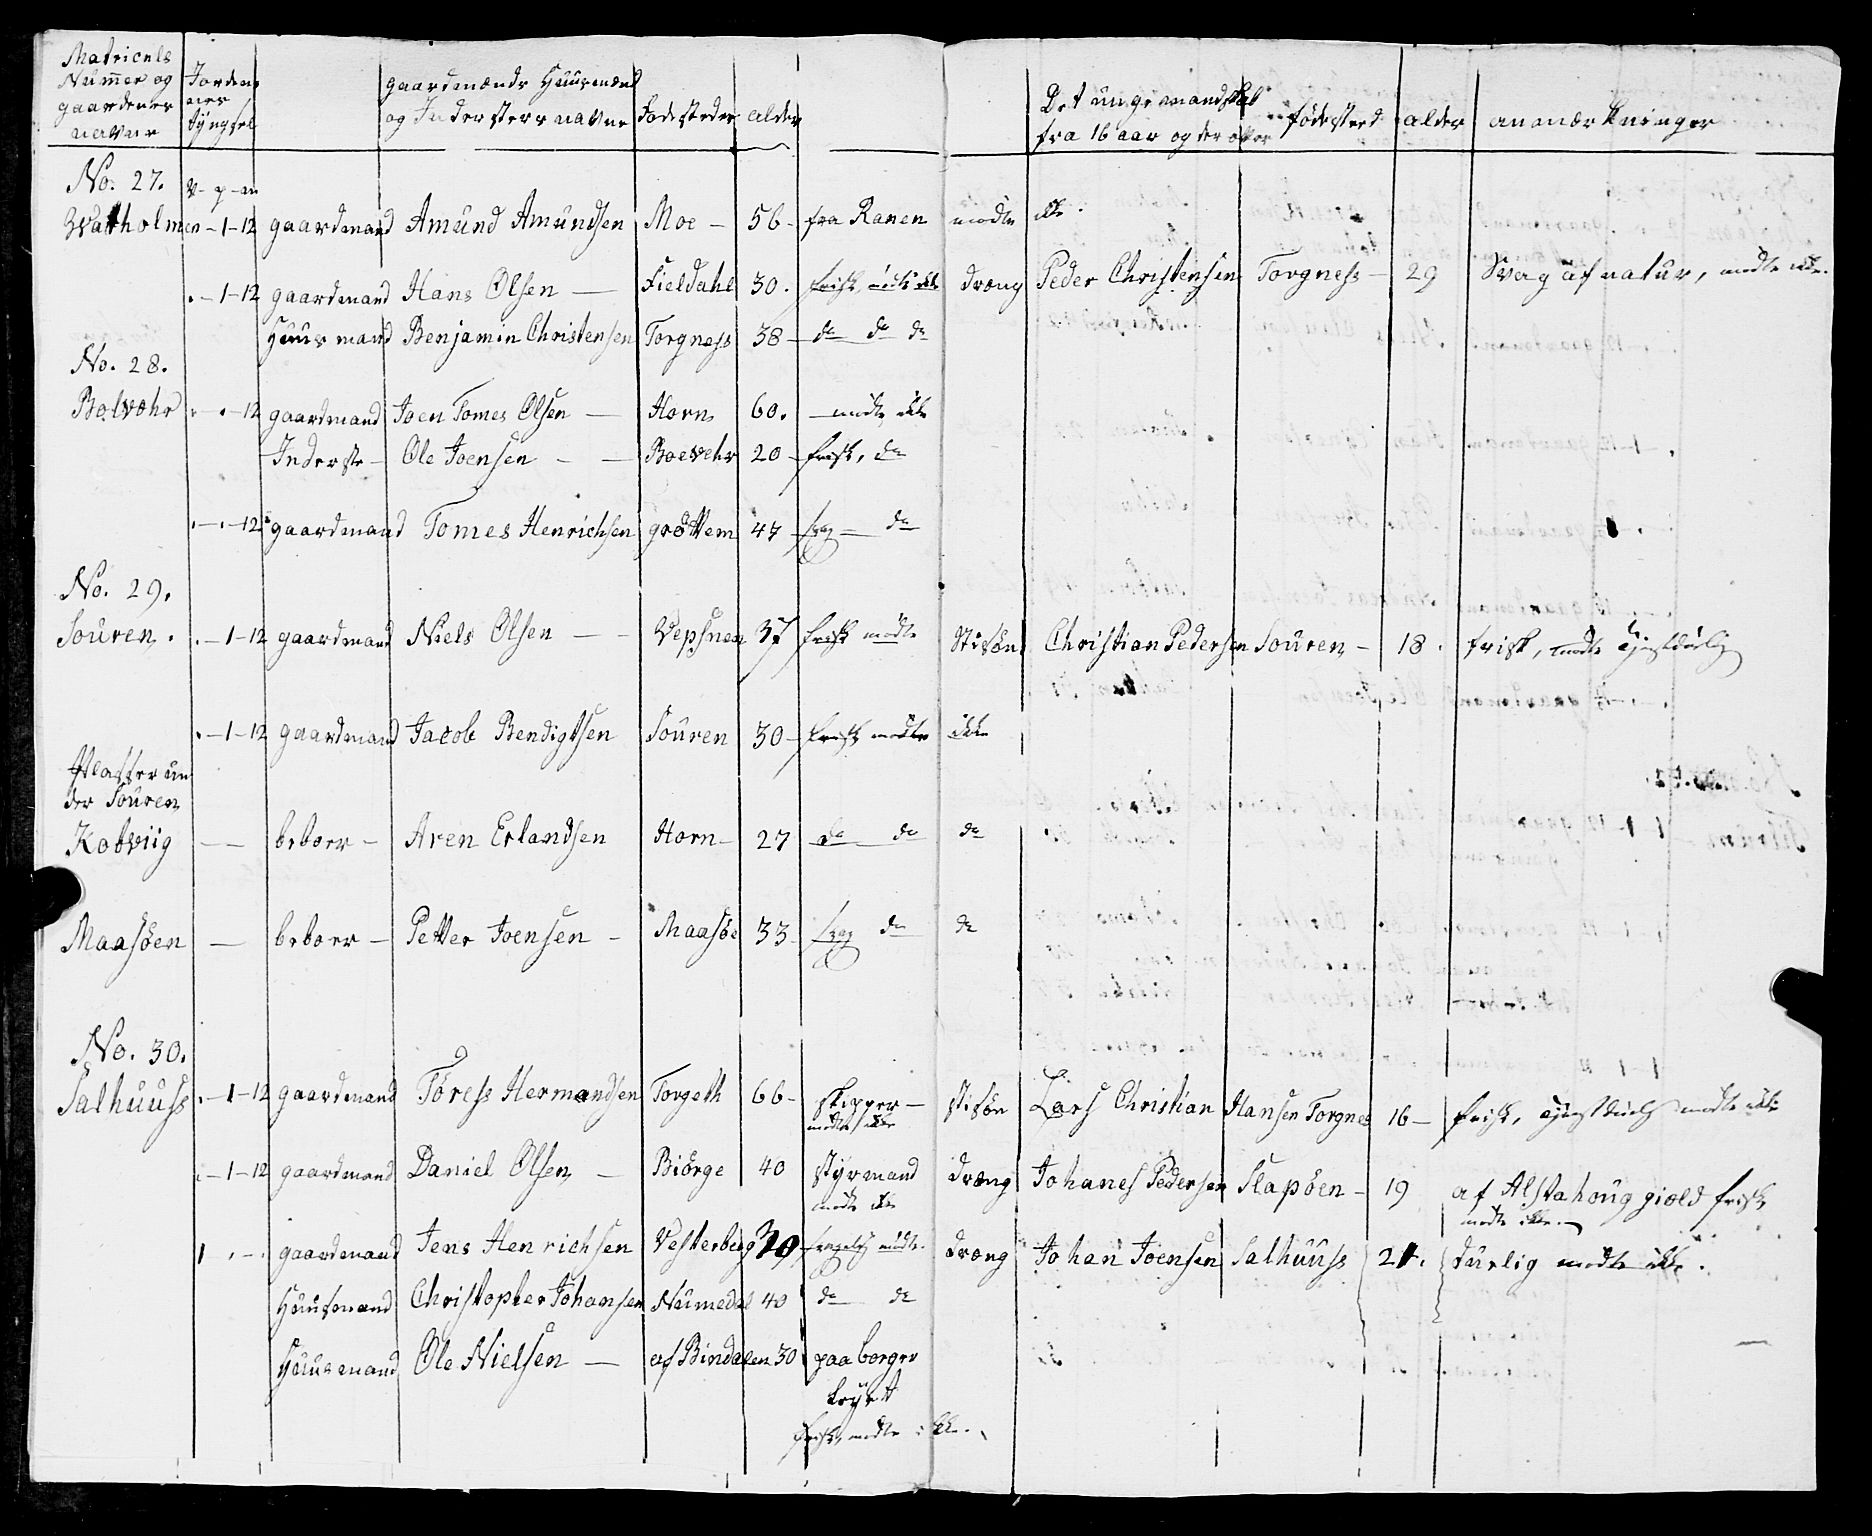 Matriculs Nummer og gaardenes navne
Jordenes tÿngsel
gaardmænds Huusmænd og Indersters navne
Fødesteder
alder
Det unge mandskab fra 16 aar og der over
fødested
alder
anmærkninger
No. 27. V- p- m
Watholmen -1-12 gaardmand Amund Amundsen Moe - 56 - fra Ranen mødte ikke.
. -1-12 gaardmand Hans Olsen — Fieldahl 30. frisk, mødte ikke dræng Peder Christensen Torgness - 29 Svag af natur, mødte ikke.
Huusmand Benjamin Christensen Torgness 38 - do do do
No. 28.
Bolvohr . . -12 gaardmand Joen Tomes Olsen — Horn 60. — mødte ikke
Inderste - Ole Joensen - — Boevehr 20 - frisk, do
. - . -12 gaardmand Tomes Henrichsen grøttem 47 svag — do
No. 29.
Souren. . -1-12 gaardmand Niels Olsen - - Vepsnen 37 frisk mødte Stisøn Christian Pedersen Souren - 18. frisk, mødte
. -1-12 gaardmand Jacob Bendigtsen Souren 30 - frisk mødte ikke
Plasser un
der Souren
Kobviig — beboer - Aren Erlandsen Horn - 27 do do do
Maasöen — beboer - Petter Joensen - Maasöe 33 svag do do
No. 30.
Salhuuss . -1-12 gaardmand Töress Hermandsen Torgeth 66 - skipper - stisøn Lars Christian Hansen Torgnes 16 - frisk, mødte ikke
mødte ikke
. -1-12 gaardmand Daniel Olsen — Biörge 40 styrmand dræng Johanes Pedersen Slapöen - 19 af Alstahoug gield frisk
mødte ikke mødte ikke. -
1 . - . gaardmand Jens Henrichsen Vesterberg 39 mødte. dræng Johan Joensen Salhuuss 21. durlig mødte ikke.
Huusmand Christopher Johansen Numedal 40 do do
Huusmand Ole Nielsen — af Bindalen 30 paa borger
frisk, mødte ikke.